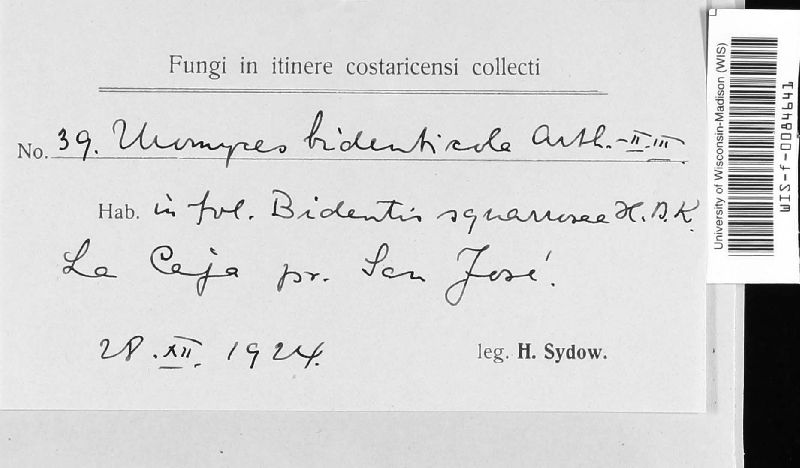 Fungi in itinere costaricensi collecti
No. 39. Uromyces bidenticola Arth. - II. III.
Hab. in fol. Bidentis squarrosae H.B.K.
La Caja pr. San José.
28. XII. 1924.
leg. H. Sydow.
University of Wisconsin-Madison (WIS)
WIS-f-0084641